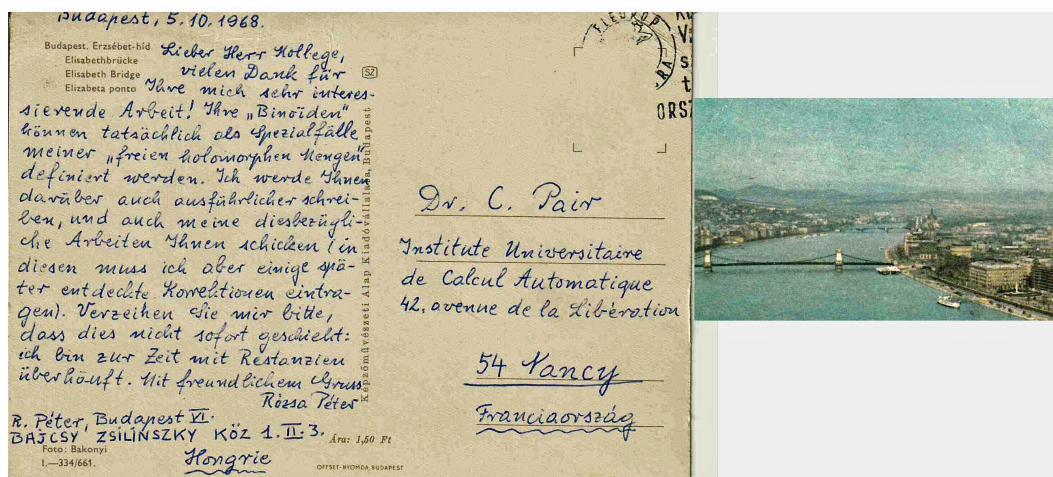 Budapest, 5.10.1968.
Budapest. Erzsébet-híd
Elisabethbrücke
Elisabeth Bridge
Elizabeta ponto
Lieber Herr Kollege,
vielen Dank für
Ihre mich sehr interes-
sierende Arbeit! Ihre „Binoïden"
können tatsächlich als Spezialfälle
meiner „freien holomorphen Mengen"
definiert werden. Ich werde Ihnen
darüber auch ausführlicher schrei-
ben, und auch meine diesbezügli-
che Arbeiten Ihnen schicken (in
diesen muss ich aber einige spä-
ter entdeckte Korrektionen eintra-
gen). Verzeihen Sie mir bitte,
dass dies nicht sofort geschieht:
ich bin zur Zeit mit Restanzien
überhäuft. Mit freundlichem Gruss
Rózsa Péter
R. Péter, Budapest VI.
BAJCSY ZSILINSZKY KÖZ 1. II. 3.
Hongrie
Foto: Bakonyi
I.—334/661.
Ára: 1,50 Ft
OFFSET-NYOMDA BUDAPEST
SZ
Képzőművészeti Alap Kiadóvállalata, Budapest
FLEUROP
ORSZ
Dr. C. Pair
Institute Universitaire
de Calcul Automatique
42, avenue de la Libération
54 Nancy
Franciaország